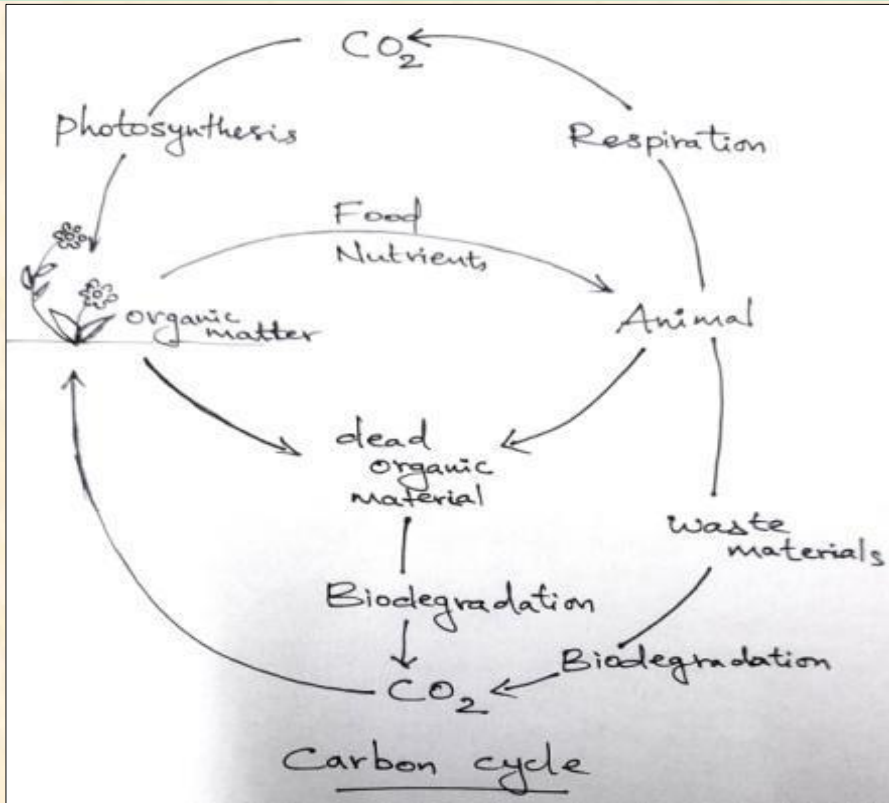 CO2
Photosynthesis
Respiration
Food
Nutrients
organic
matter
Animal
dead
organic
material
waste
materials
Biodegradation
Biodegradation
CO2
Carbon cycle